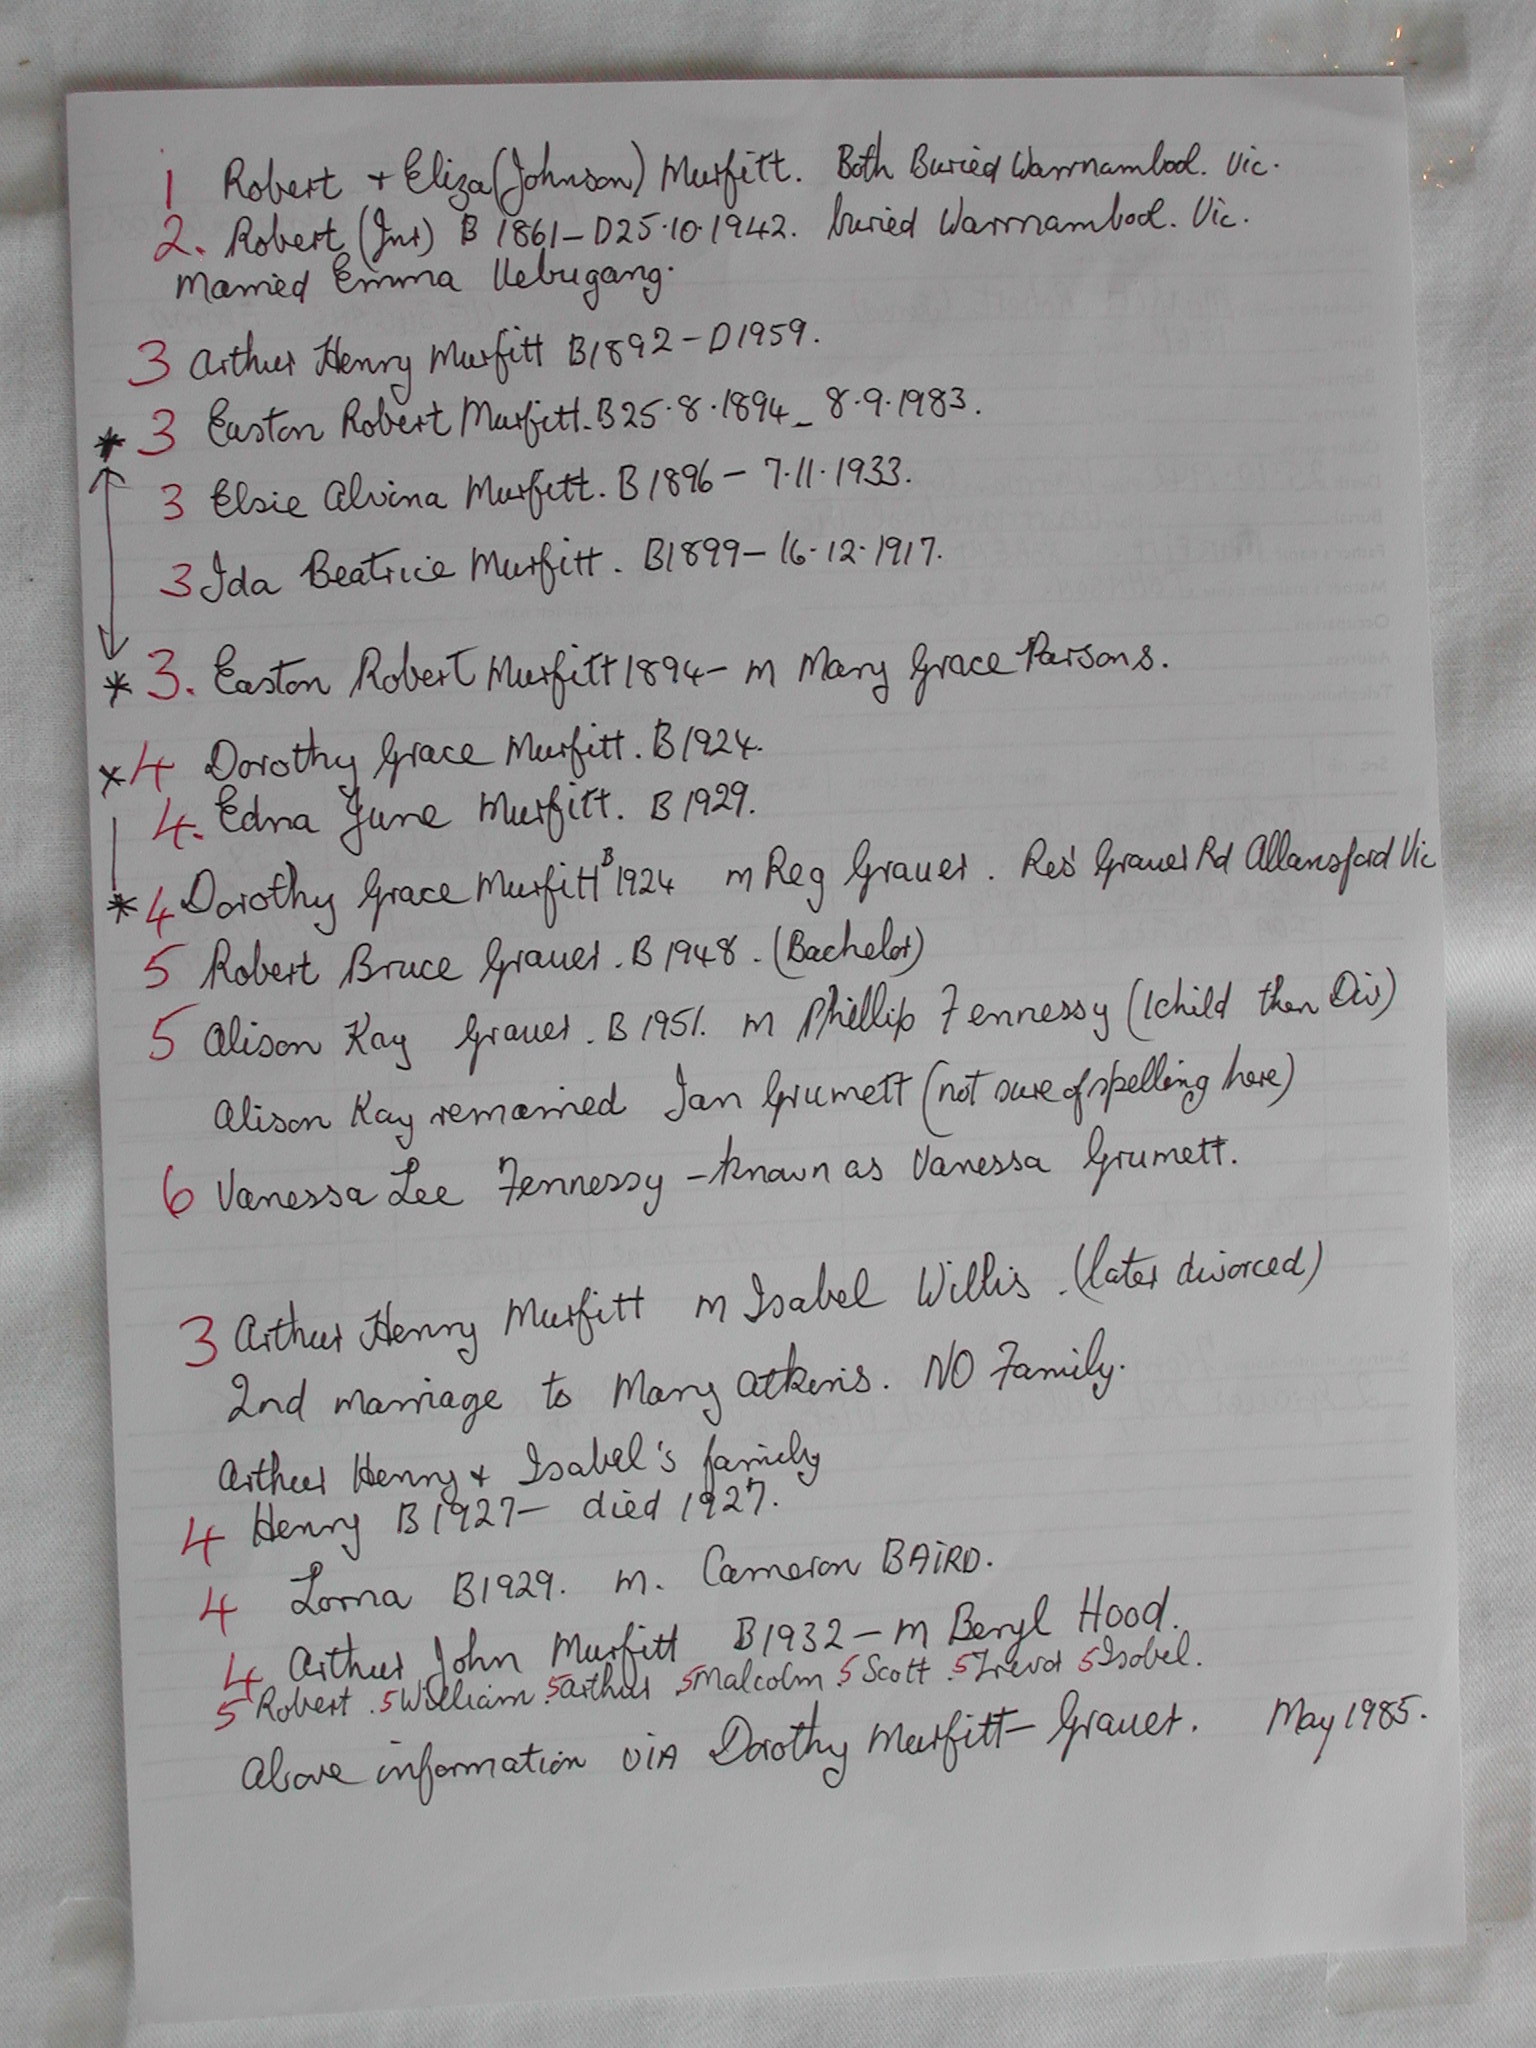 1 Robert + Eliza (Johnson) Murfitt. Both Buried Warrnambool. Vic.
2. Robert (Jnr) B 1861 – D25.10.1942. buried Warrnambool. Vic.
Married Emma Uebugang.
3 Arthur Henry Murfitt B1892 – D1959.
* 3 Easton Robert Murfitt. B25.8.1894 – 8.9.1983.
3 Elsie Alvina Murfitt. B1896 – 7.11.1933.
3 Ida Beatrice Murfitt. B1899 – 16.12.1917.
* 3. Easton Robert Murfitt 1894 – m Mary Grace Parsons.
* 4 Dorothy Grace Murfitt. B1924.
4. Edna June Murfitt. B 1929.
* 4 Dorothy Grace Murfitt B 1924 m Reg Grauer. Res' Grauer Rd Allansford Vic
5 Robert Bruce Grauer. B 1948. (Bachelor)
5 Alison Kay Grauer. B 1951. m Phillip Fennessy (1 child then Div)
Alison Kay remarried Ian Grumett (not sure of spelling here)
6 Vanessa Lee Fennessy – known as Vanessa Grumett.
3 Arthur Henry Murfitt m Isabel Willis. (later divorced)
2nd marriage to Mary Atkens. NO Family.
Arthur Henry + Isabel's family
4 Henry B 1927 – died 1927.
4 Lorna B1929. m. Cameron BAIRD.
4 Arthur John Murfitt B1932 – m Beryl Hood.
5 Robert. 5 William. 5 Arthur. 5 Malcolm. 5 Scott. 5 Trevor 5 Isobel.
Above information VIA Dorothy Murfitt – Grauer. May 1985.